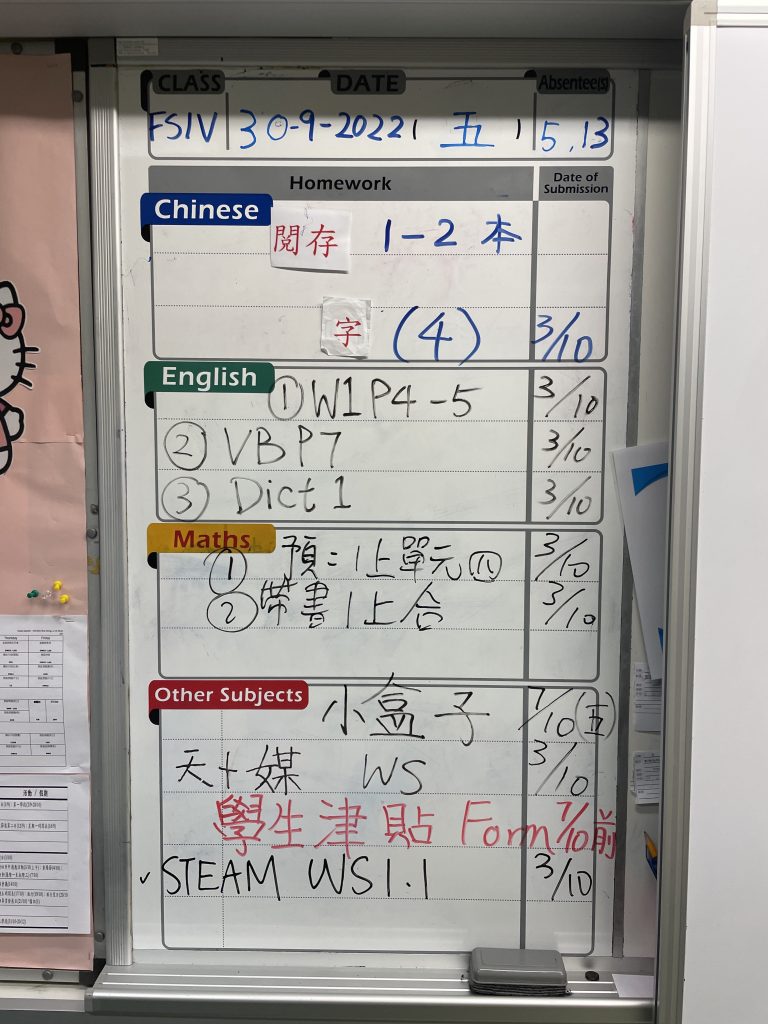 CLASS DATE Absentee(s)
FSIV 30-9-2022 五 5,13
Homework Date of Submission
Chinese
閱存 1-2 本
字 (4) 3/10
English
① W1 P4-5 3/10
② VB P7 3/10
③ Dict 1 3/10
Maths
① 預: 1上單元㊃ 3/10
② 帶書 1上合 3/10
Other Subjects
小盒子 7/10(五)
天+媒 WS 3/10
學生津貼 Form 7/10前
✓ STEAM WS1.1 3/10
Thursday Friday
活動 / 假期